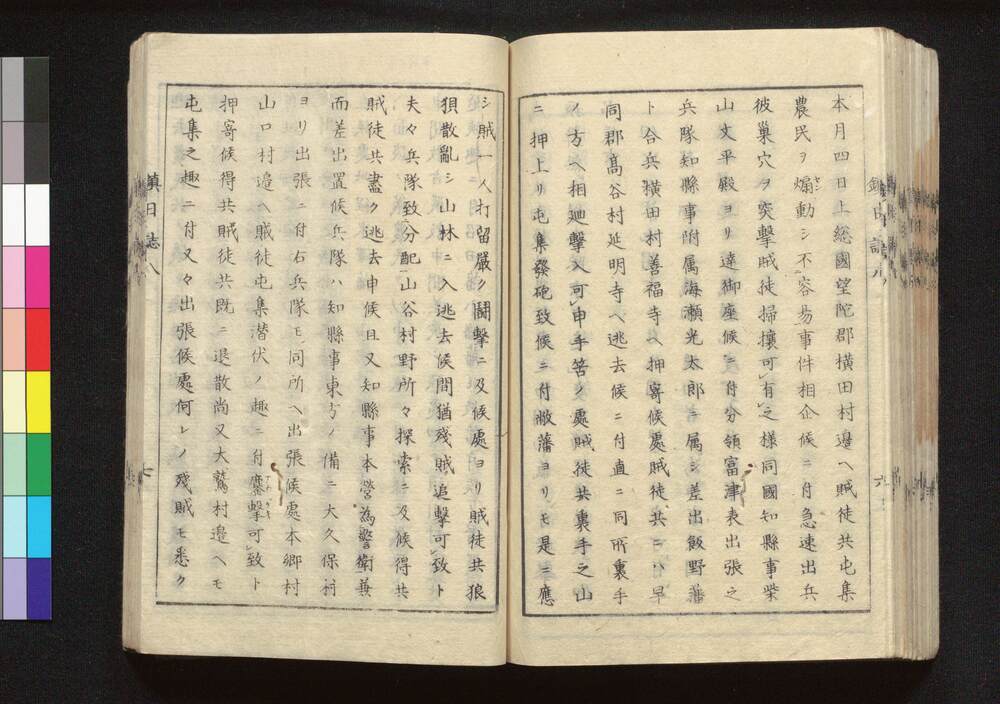 本月四日上総國望陀郡横田村邉ヘ賊徒共屯集
農民ヲ煽動シ不容昜事件相企候ニ付急速出兵
彼巣穴ヲ突撃賊徒掃攘可有之様同國知縣事柴
山文平殿ヨリ達御座候ニ付分領富津表出張之
兵隊知縣事附属海瀬光太郎ニ属シ差出飯野藩
ト合兵横田村善福寺ヘ押寄候處賊徒共ニハ早
同郡髙谷村延明寺ヘ逃去候ニ付直ニ同所裏手
ノ方ヘ相廻撃入可申手筈ノ處賊徒共裏手之山
ニ押上リ屯集發砲致候ニ付敝藩ヨリモ是ニ應
シ賊一人打留嚴ク闘撃ニ及候處ヨリ賊徒共狼
狽散亂シ山林ニ入逃去候間猶殘賊追撃可致ト
夫々兵隊致分配山谷村野所々探索ニ及候得共
賊徒共盡ク逃去申候且又知縣事本營為警衛兼
而差出置候兵隊ハ知縣事東方ノ備ニ大久保村
ヨリ出張ニ付右兵隊モ同所ヘ出張候處本郷村
山口村邉ヘ賊徒屯集潜伏ノ趣ニ付鏖撃可致ト
押寄候得共賊徒共既ニ退散尚又大鷲村邉ヘモ
屯集之趣ニ付又々出張候處何レノ殘賊モ悉ク
鎮日誌八
七